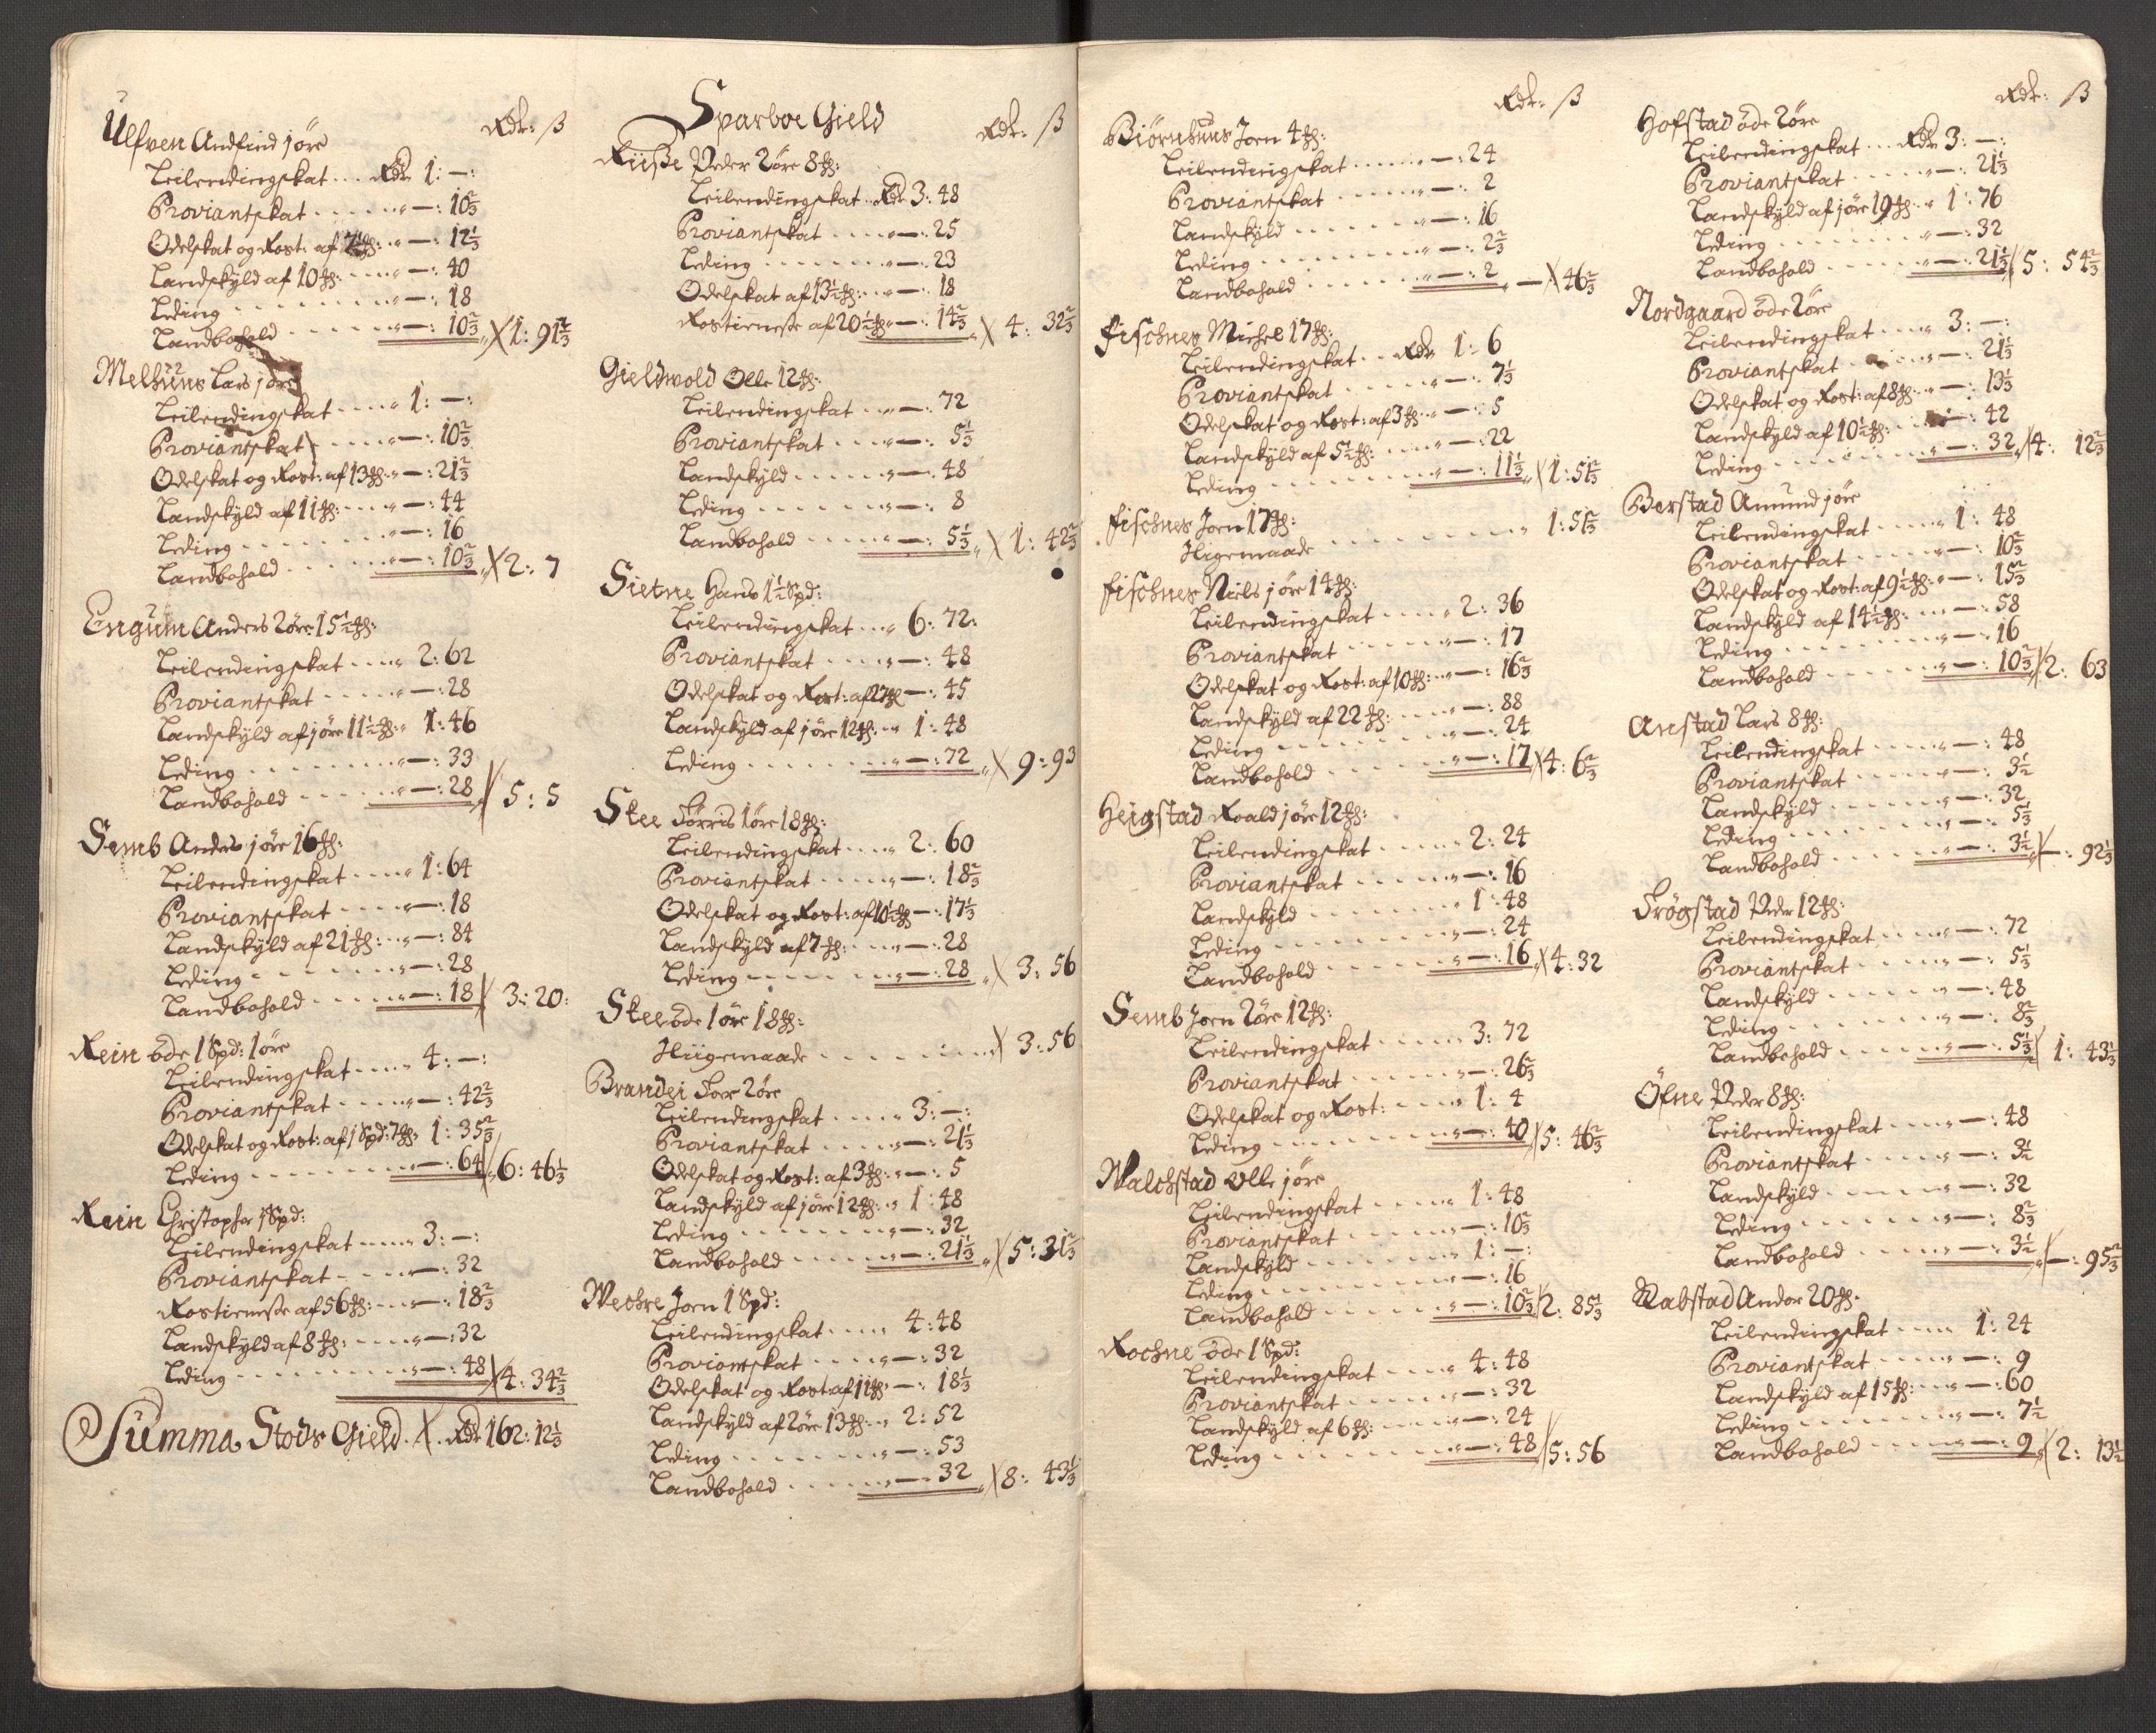 Rdr: ß
Ulfven Andfind jøre
Leilendingskat ... Rdr 1: —:
Proviantskat ...... — : 10 2/3
Odelskat og Rost: af 7 1/2 ℔: " — : 12 1/3
Landskyld af 10 ℔: .... — : 40
Leding ........ — : 18
Landbohold ...... — : 10 2/3 " X 1: 91 2/3
Melhuus Lars jøre
Leilendingskat .... 1: —:
Proviantskat ...... — : 10 2/3
Odelskat og Rost: af 13 ℔: " — : 21 2/3
Landskyld af 11 ℔: .... — : 44
Leding ........ — : 16
Landbohold ...... — : 10 2/3 " X 2: 7
Engum Anders 2 øre 15 1/2 ℔:
Leilendingskat .... 2: 62
Proviantskat ...... — : 28
Landskyld af jøre 11 1/2 ℔: " 1: 46
Leding ........ — : 33
Landbohold ...... — : 28 " X 5: 5
Semb Anders jøre 16 ℔:
Leilendingskat .... 1: 64
Proviantskat ...... — : 18
Landskyld af 21 ℔: .... — : 84
Leding ........ — : 28
Landbohold ...... — : 18 X 3: 20:
Rein öde 1 Spd: 1 øre
Leilendingskat .... 4: —:
Proviantskat ...... — : 42 2/3
Odelskat og Rost: af 1 Spd: 7 ℔: 1: 35 2/3
Leding ........ — : 64 X 6: 46 1/3
Rein Christopher 1 Spd:
Leilendingskat .... 3: —:
Proviantskat ...... — : 32
Rostieneste af 56 ℔: .... — : 18 2/3
Landskyld af 8 ℔: .... — : 32
Leding ........ — : 48 X 4: 34 2/3
Summa Stods Gield . X . Rdr 162: 12 1/3
Sparboe Gield
Rdr: ß
Peder 2 øre 8 ℔:
Leilendingskat .. Rdr 3: 48
Proviantskat ...... — : 25
Leding ........ — : 23
Odelskat af 13 1/2 ℔: .... — : 18
Rostieneste af 20 1/2 ℔ " — : 14 2/3 X 4: 32 2/3
Gieldwold Olle 12 ℔:
Leilendingskat .... — : 72
Proviantskat ...... — : 5 1/3
Landskyld ...... — : 48
Leding ........ — : 8
Landbohold ...... — : 5 1/3 " X 1: 42 2/3
Sietne Hans 1 1/2 Spd:
Leilendingskat .... 6: 72:
Proviantskat ...... — : 48
Odelskat og Rost: af 27 ℔ — : 45
Landskyld af jøre 12 ℔: " 1: 48
Leding ........ — : 72 " X 9: 93
Stee Torris 1 øre 18 ℔:
Leilendingskat .... 2: 60
Proviantskat ...... — : 18 2/3
Odelskat og Rost: af 10 1/2 ℔ — : 17 1/3
Landskyld af 7 ℔: .... — : 28
Leding ........ — : 28 " X 3: 56
Stee öde 1 øre 18 ℔:
Liigemaade ........ X 3: 56
Brandei Tore 2 øre
Leilendingskat .... 3: —:
Proviantskat ...... — : 21 1/3
Odelskat og Rost: af 3 ℔: " — : 5
Landskyld af jøre 12 ℔: " 1: 48
Leding ........ — : 32
Landbohold ...... — : 21 1/3 " X 5: 31 2/3
Wechre Joen 1 Spd:
Leilendingskat .... 4: 48
Proviantskat ...... — : 32
Odelskat og Rost: af 11 ℔ " — : 18 1/3
Landskyld af 2 øre 13 ℔: " 2: 52
Leding ........ — : 53
Landbohold ...... — : 32 " X 8: 43 1/3
Rdr: ß
Biørnhuus Joen 4 ℔:
Leilendingskat ...... — : 24
Proviantskat ...... — : 2
Landskyld ...... — : 16
Leding ........ — : 2 2/3
Landbohold ...... — : 2 " — X 46 2/3
Fischnes Michel 17 ℔:
Leilendingskat .. Rdr 1: 6
Proviantskat ...... — : 7 1/3
Odelskat og Rost: af 3 ℔: " — : 5
Landskyld af 5 1/2 ℔: .... — : 22
Leding ........ — : 11 1/3 " X 1: 51 2/3
Fischnes Joen 17 ℔:
Liigemaade ........ 1: 51 2/3
Fischnes Niels jøre 14 ℔:
Leilendingskat .... 2: 36
Proviantskat ...... — : 17
Odelskat og Rost: af 10 ℔: " — : 16 2/3
Landskyld af 22 ℔: .... — : 88
Leding ........ — : 24
Landbohold ...... — : 17 X 4: 6 2/3
Heigstad Roald jøre 12 ℔:
Leilendingskat .... 2: 24
Proviantskat ...... — : 16
Landskyld ...... 1: 48
Leding ........ — : 24
Landbohold ...... — : 16 X 4: 32
Semb Joen 2 øre 12 ℔:
Leilendingskat .... 3: 72
Proviantskat ...... — : 26 2/3
Odelskat og Rost: .... 1: 4
Leding ........ — : 40 X 5: 46 2/3
Walchstad Olle jøre
Leilendingskat .... 1: 48
Proviantskat ...... — : 10 2/3
Landskyld ...... 1: —:
Leding ........ — : 16
Landbohold ...... — : 10 2/3 X 2: 85 1/3
Rochne öde 1 Spd:
Leilendingskat .... 4: 48
Proviantskat ...... — : 32
Landskyld af 6 ℔: .... — : 24
Leding ........ — : 48 X 5: 56
Rdr: ß
Hofstad öde 2 øre
Leilendingskat ... Rdr 3: —:
Proviantskat ...... — : 21 1/3
Landskyld af jøre 19 ℔: " 1: 76
Leding ........ — : 32
Landbohold ...... — : 21 1/3 X 5: 54 2/3
Nordgaard öde 2 øre
Leilendingskat .... 3: —:
Proviantskat ...... — : 21 1/3
Odelskat og Rost: af 8 ℔: " — : 13 1/3
Landskyld af 10 1/2 ℔: .... — : 42
Leding ........ — : 32 " X 4: 12 2/3
Berstad Amund jøre
Leilendingskat .... 1: 48
Proviantskat ...... — : 10 2/3
Odelskat og Rost: af 9 1/2 ℔: " — : 15 2/3
Landskyld af 14 1/2 ℔: .... — : 58
Leding ........ — : 16
Landbohold ...... — : 10 2/3 X 2: 63
Anstad Lars 8 ℔:
Leilendingskat .... — : 48
Proviantskat ...... — : 3 1/2
Landskyld ...... — : 32
Leding ........ — : 5 1/3
Landbohold ...... — : 3 1/2 X — : 92 1/3
Trøgstad Peder 12 ℔:
Leilendingskat .... — : 72
Proviantskat ...... — : 5 1/3
Landskyld ...... — : 48
Leding ........ — : 8 2/3
Landbohold ...... — : 5 1/3 X 1: 43 1/3
Öfne Peder 8 ℔:
Leilendingskat .... — : 48
Proviantskat ...... — : 3 1/2
Landskyld ...... — : 32
Leding ........ — : 8 2/3
Landbohold ...... — : 3 1/2 X — : 95 2/3
Rabstad Andor 20 ℔:
Leilendingskat .... 1: 24
Proviantskat ...... — : 9
Landskyld af 15 ℔: .... — : 60
Leding ........ — : 7 1/2
Landbohold ...... — : 9 " X 2: 13 1/2